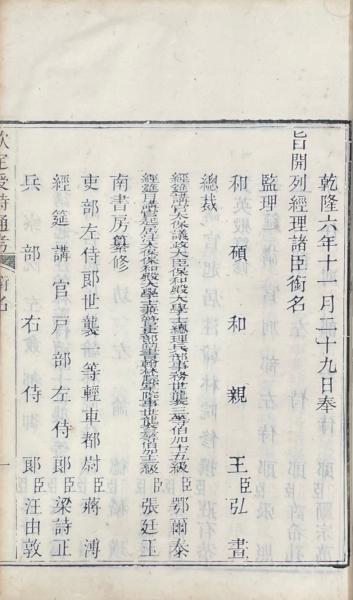 乾隆六年十一月二十九日奉
旨開列經理諸臣銜名
監理
和碩和親王臣弘晝
總裁
經筵講官太保議政大臣保和殿大學士總理兵部事務世襲三等伯加十五級臣鄂爾泰
經筵日講起居注官太保保和殿大學士兼管吏部尚書翰林院掌院事世襲三等伯加級臣張廷玉
南書房纂修
吏部左侍郎世襲一等輕車都尉臣蔣溥
經筵講官戶部左侍郎臣梁詩正
兵部右侍郎臣汪由敦
欽定授時通考 銜名 一